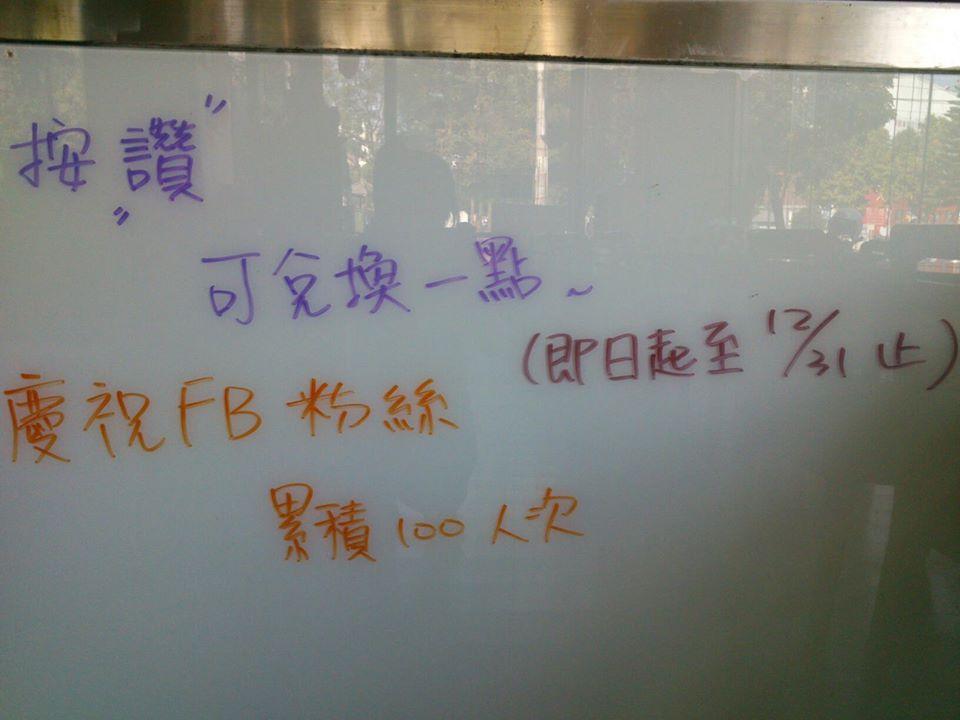 按"讚"
可兌換一點~
(即日起至12/31止)
慶祝FB粉絲
累積100人次